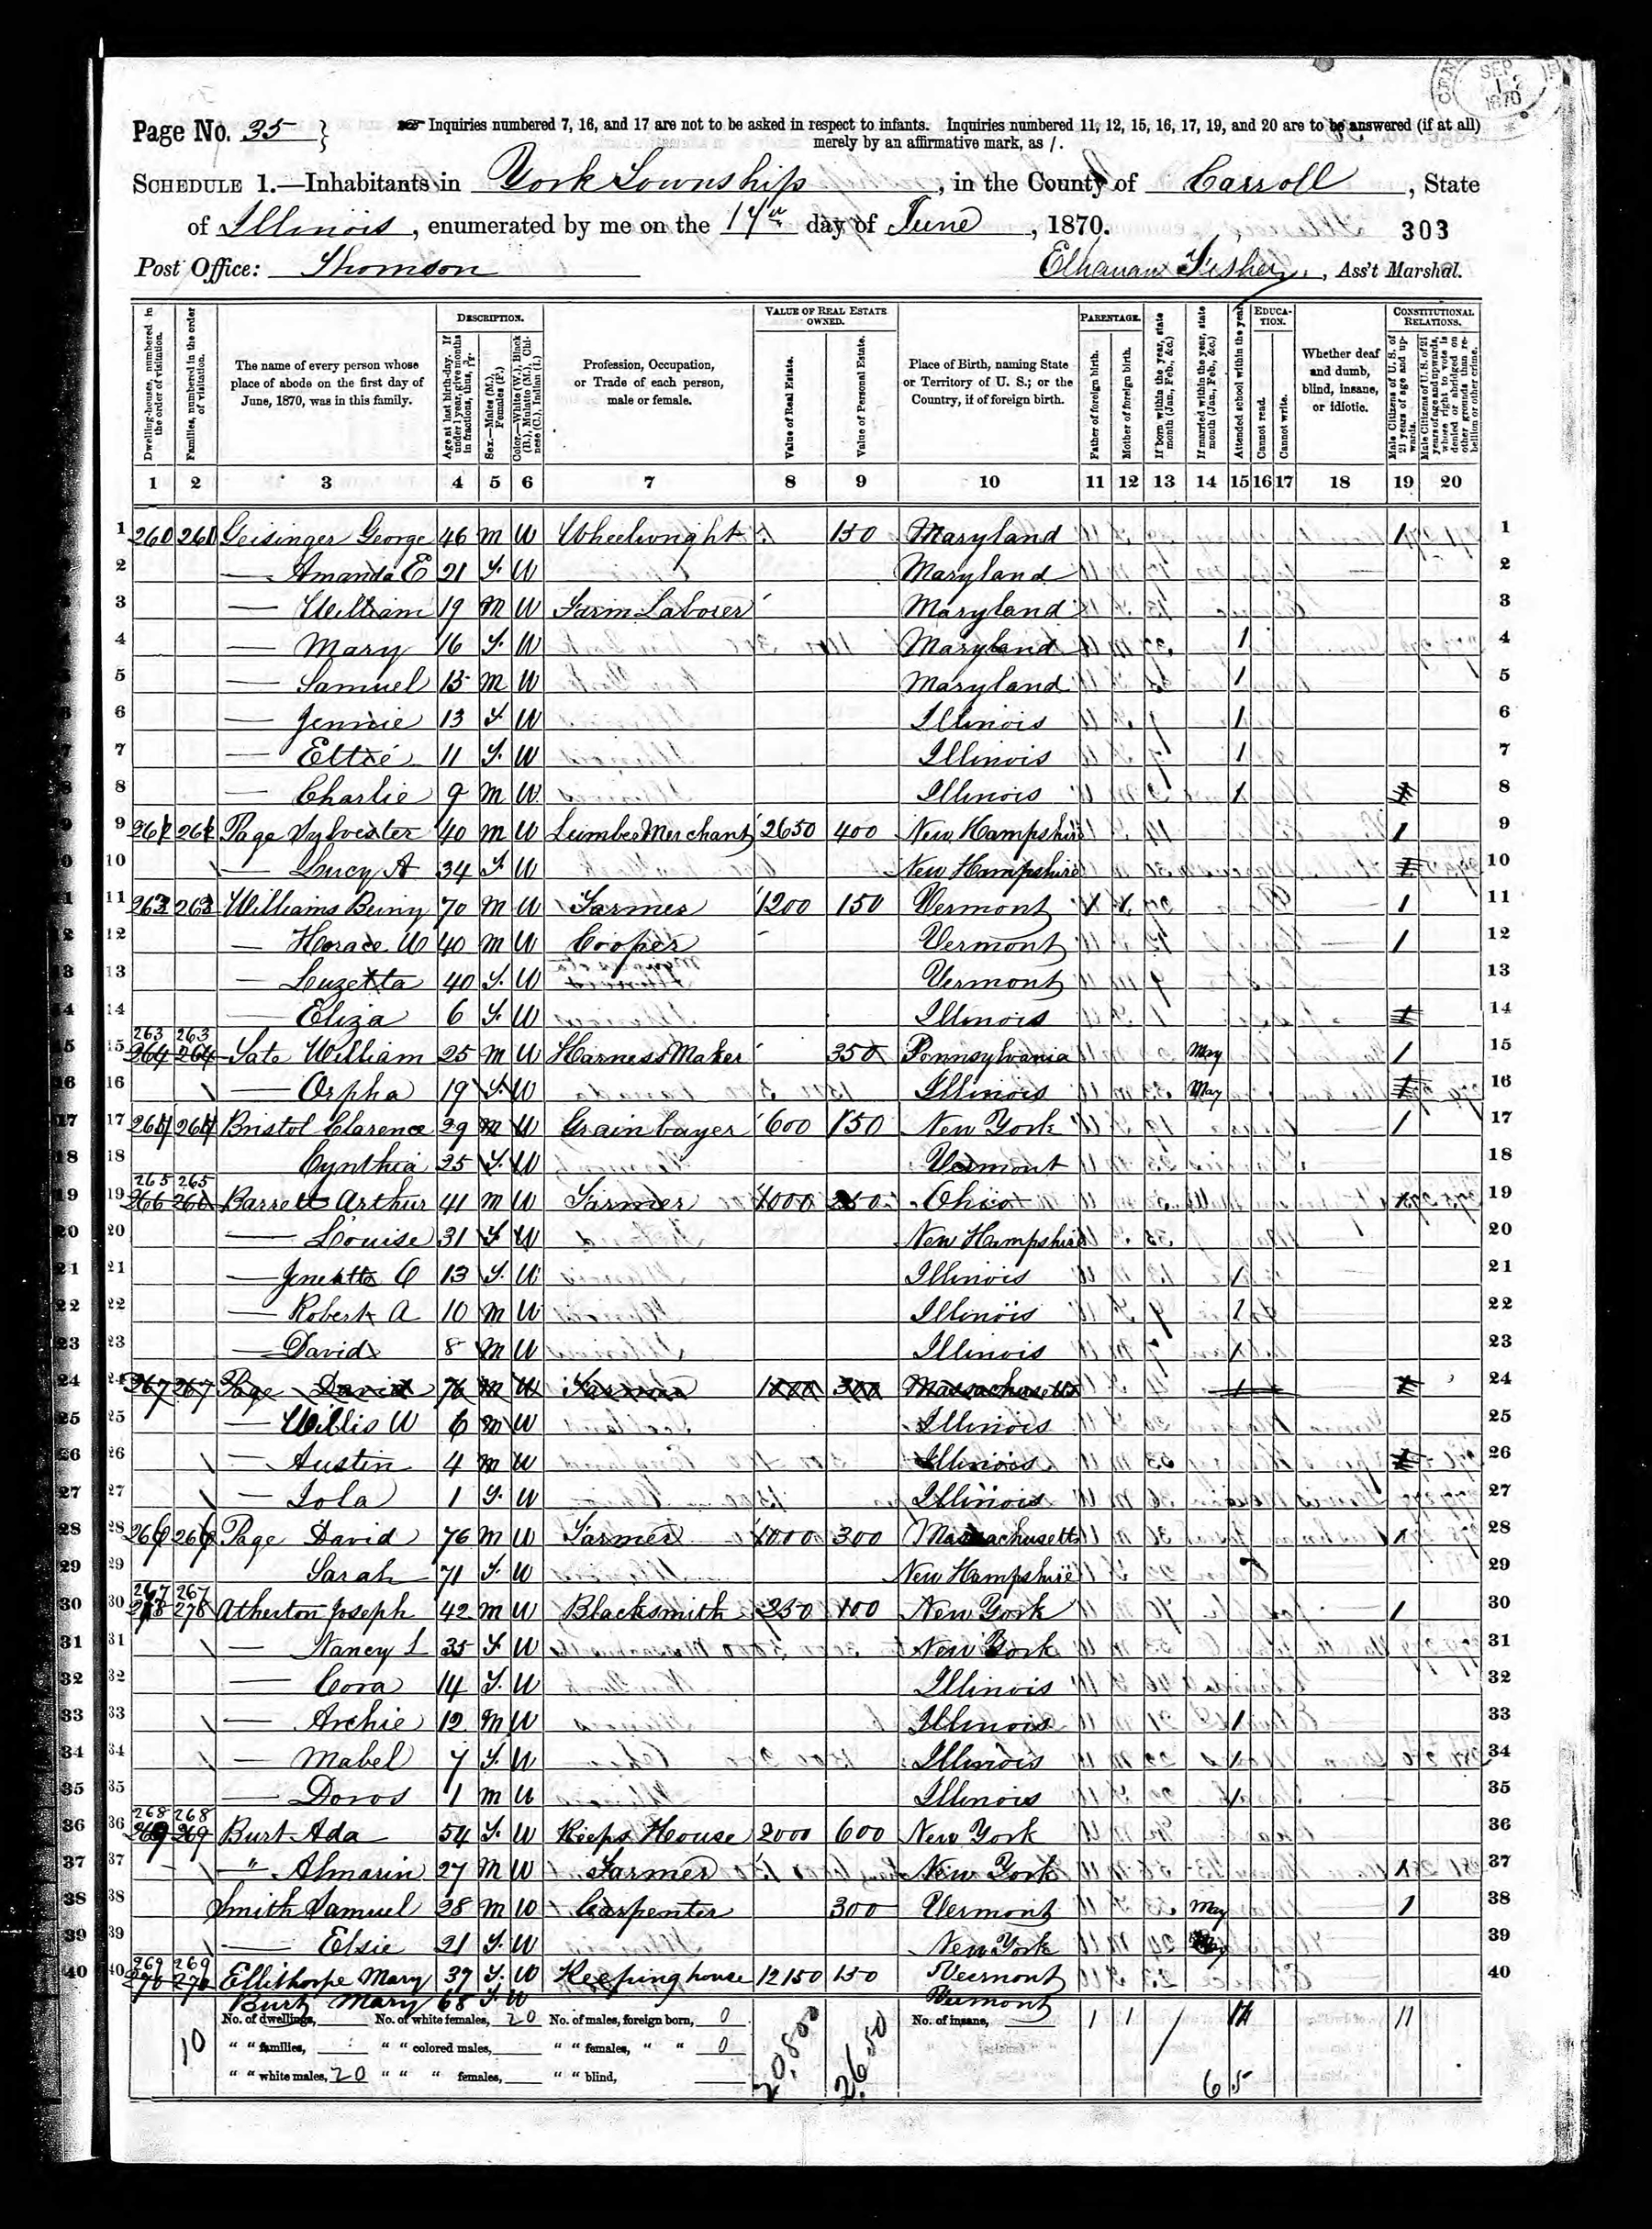 CEN SEP 12 1870
Page No. 35 } Inquiries numbered 7, 16, and 17 are not to be asked in respect to infants. Inquiries numbered 11, 12, 15, 16, 17, 19, and 20 are to be answered (if at all)
merely by an affirmative mark, as /.
SCHEDULE 1.—Inhabitants in York Township, in the County of Carroll, State
of Illinois, enumerated by me on the 14th day of June, 1870. 303
Post Office: Thomson Elhanan Fisher, Ass't Marshal.
Dwelling-houses, numbered in the order of visitation.
Families, numbered in the order of visitation.
The name of every person whose place of abode on the first day of June, 1870, was in this family.
DESCRIPTION.
Age at last birth-day. If under 1 year, give months in fractions, thus, 3/12.
Sex.—Males (M.), Females (F.)
Color.—White (W.), Black (B.), Mulatto (M.), Chinese (C.), Indian (I.)
Profession, Occupation, or Trade of each person, male or female.
VALUE OF REAL ESTATE OWNED.
Value of Real Estate.
Value of Personal Estate.
Place of Birth, naming State or Territory of U. S.; or the Country, if of foreign birth.
PARENTAGE.
Father of foreign birth.
Mother of foreign birth.
If born within the year, state month (Jan., Feb., &c.)
If married within the year, state month (Jan., Feb., &c.)
Attended school within the year.
EDUCATION.
Cannot read.
Cannot write.
Whether deaf and dumb, blind, insane, or idiotic.
CONSTITUTIONAL RELATIONS.
Male Citizens of U. S. of 21 years of age and upwards.
Male Citizens of U. S. of 21 years of age and upwards, whose right to vote is denied or abridged on other grounds than rebellion or other crime.
1 2 3 4 5 6 7 8 9 10 11 12 13 14 15 16 17 18 19 20
1 260 260 Geisinger George 46 M W Wheelwright 150 Maryland 1 1
2 — Amanda E 21 F W Maryland 2
3 — William 19 M W Farm Laborer Maryland 3
4 — Mary 16 F W Maryland 1 4
5 — Samuel 15 M W Maryland 1 5
6 — Jennie 13 F W Illinois 1 6
7 — Ettie 11 F W Illinois 1 7
8 — Charlie 9 M W Illinois 1 8
9 261 261 Page Sylvester 40 M W Lumber Merchant 2650 400 New Hampshire 1 9
10 — Lucy A 34 F W New Hampshire 10
11 262 262 Williams Beniy 70 M W Farmer 1200 150 Vermont 1 11
12 — Horace W 40 M W Cooper Vermont 1 12
13 — Luzetta 40 F W Vermont 13
14 — Eliza 6 F W Illinois 14
263 263
15 264 264 Tate William 25 M W Harness Maker 350 Pennsylvania May 1 15
16 — Orpha 19 F W Illinois May 16
17 264 264 Bristol Clarence 29 M W Grain buyer 600 150 New York 1 17
18 Cynthia 25 F W Vermont 18
265 265
19 266 266 Barrett Arthur 41 M W Farmer 1000 250 Ohio 1 19
20 — Louise 31 F W New Hampshire 20
21 — Jenette C 13 F W Illinois 1 21
22 — Robert A 10 M W Illinois 1 22
23 — David 8 M W Illinois 1 23
24 267 267 Page David 76 M W Farmer 1000 300 Massachusetts 24
25 — Willis W 6 M W Illinois 25
26 — Austin 4 M W Illinois 26
27 — Iola 1 F W Illinois 27
28 266 266 Page David 76 M W Farmer 1000 300 Massachusetts 1 28
29 Sarah 71 F W New Hampshire 29
267 267
30 278 278 Atherton Joseph 42 M W Blacksmith 250 100 New York 1 30
31 — Nancy L 35 F W New York 31
32 — Cora 14 F W Illinois 32
33 — Archie 12 M W Illinois 1 33
34 — Mabel 7 F W Illinois 1 34
35 — Doros 1 M W Illinois 1 35
268 268
36 269 269 Burt Ada 54 F W Keeps House 2000 600 New York 36
37 — " Almarin 27 M W Farmer New York 1 37
38 Smith Samuel 28 M W Carpenter 300 Vermont May 1 38
39 — Elsie 21 F W New York May 39
269 269
40 270 270 Ellithorpe Mary 37 F W Keeping house 12150 150 Vermont 40
Burt Mary 68 F W Vermont
No. of dwellings, No. of white females, 20 No. of males, foreign born, 0 No. of insane, 1 1 11
10 " " families, " " colored males, " " females, " " 0 20,800 26.50
" " white males, 20 " " " females, " " blind, 6 5